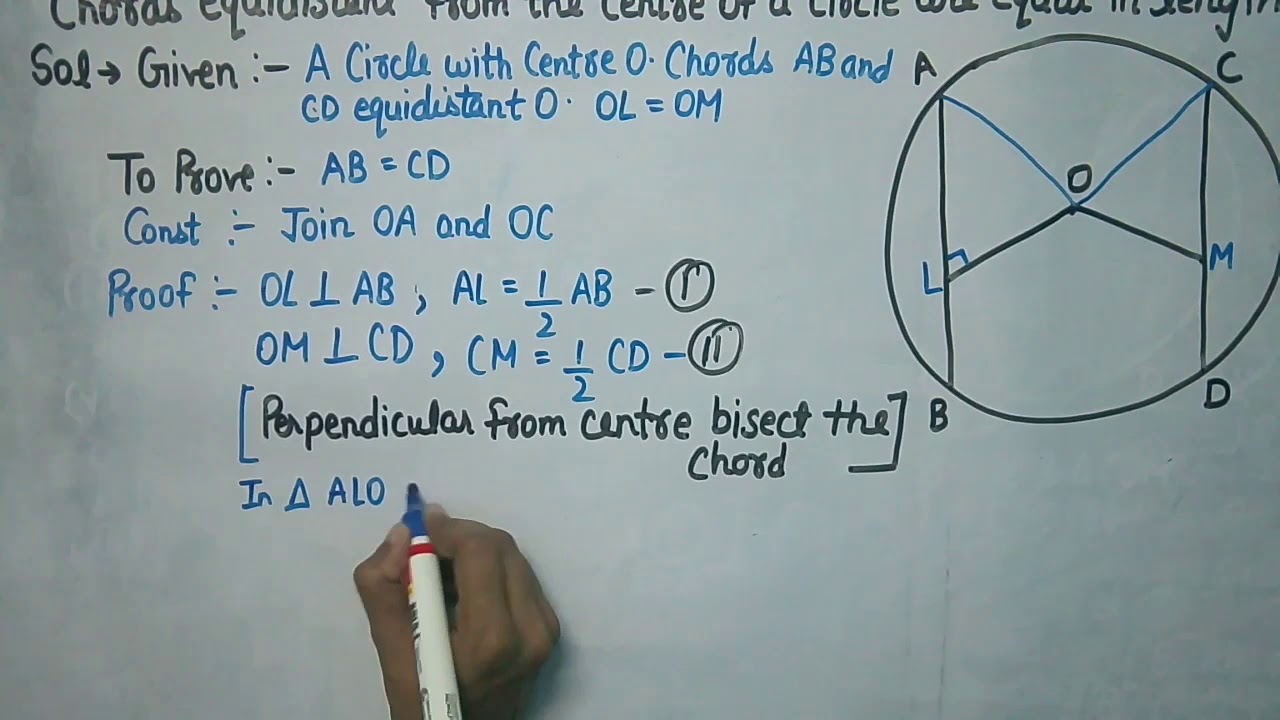 Chords equidistant from the centre of a circle are equal in length
Sol→ Given :- A Circle with Centre O. Chords AB and
CD equidistant O. OL = OM
To Prove :- AB = CD
Const :- Join OA and OC
Proof :- OL ⊥ AB , AL = 1/2 AB - I
OM ⊥ CD , CM = 1/2 CD - II
[Perpendicular from centre bisect the
Chord]
In Δ ALO
A
C
O
L
M
B
D